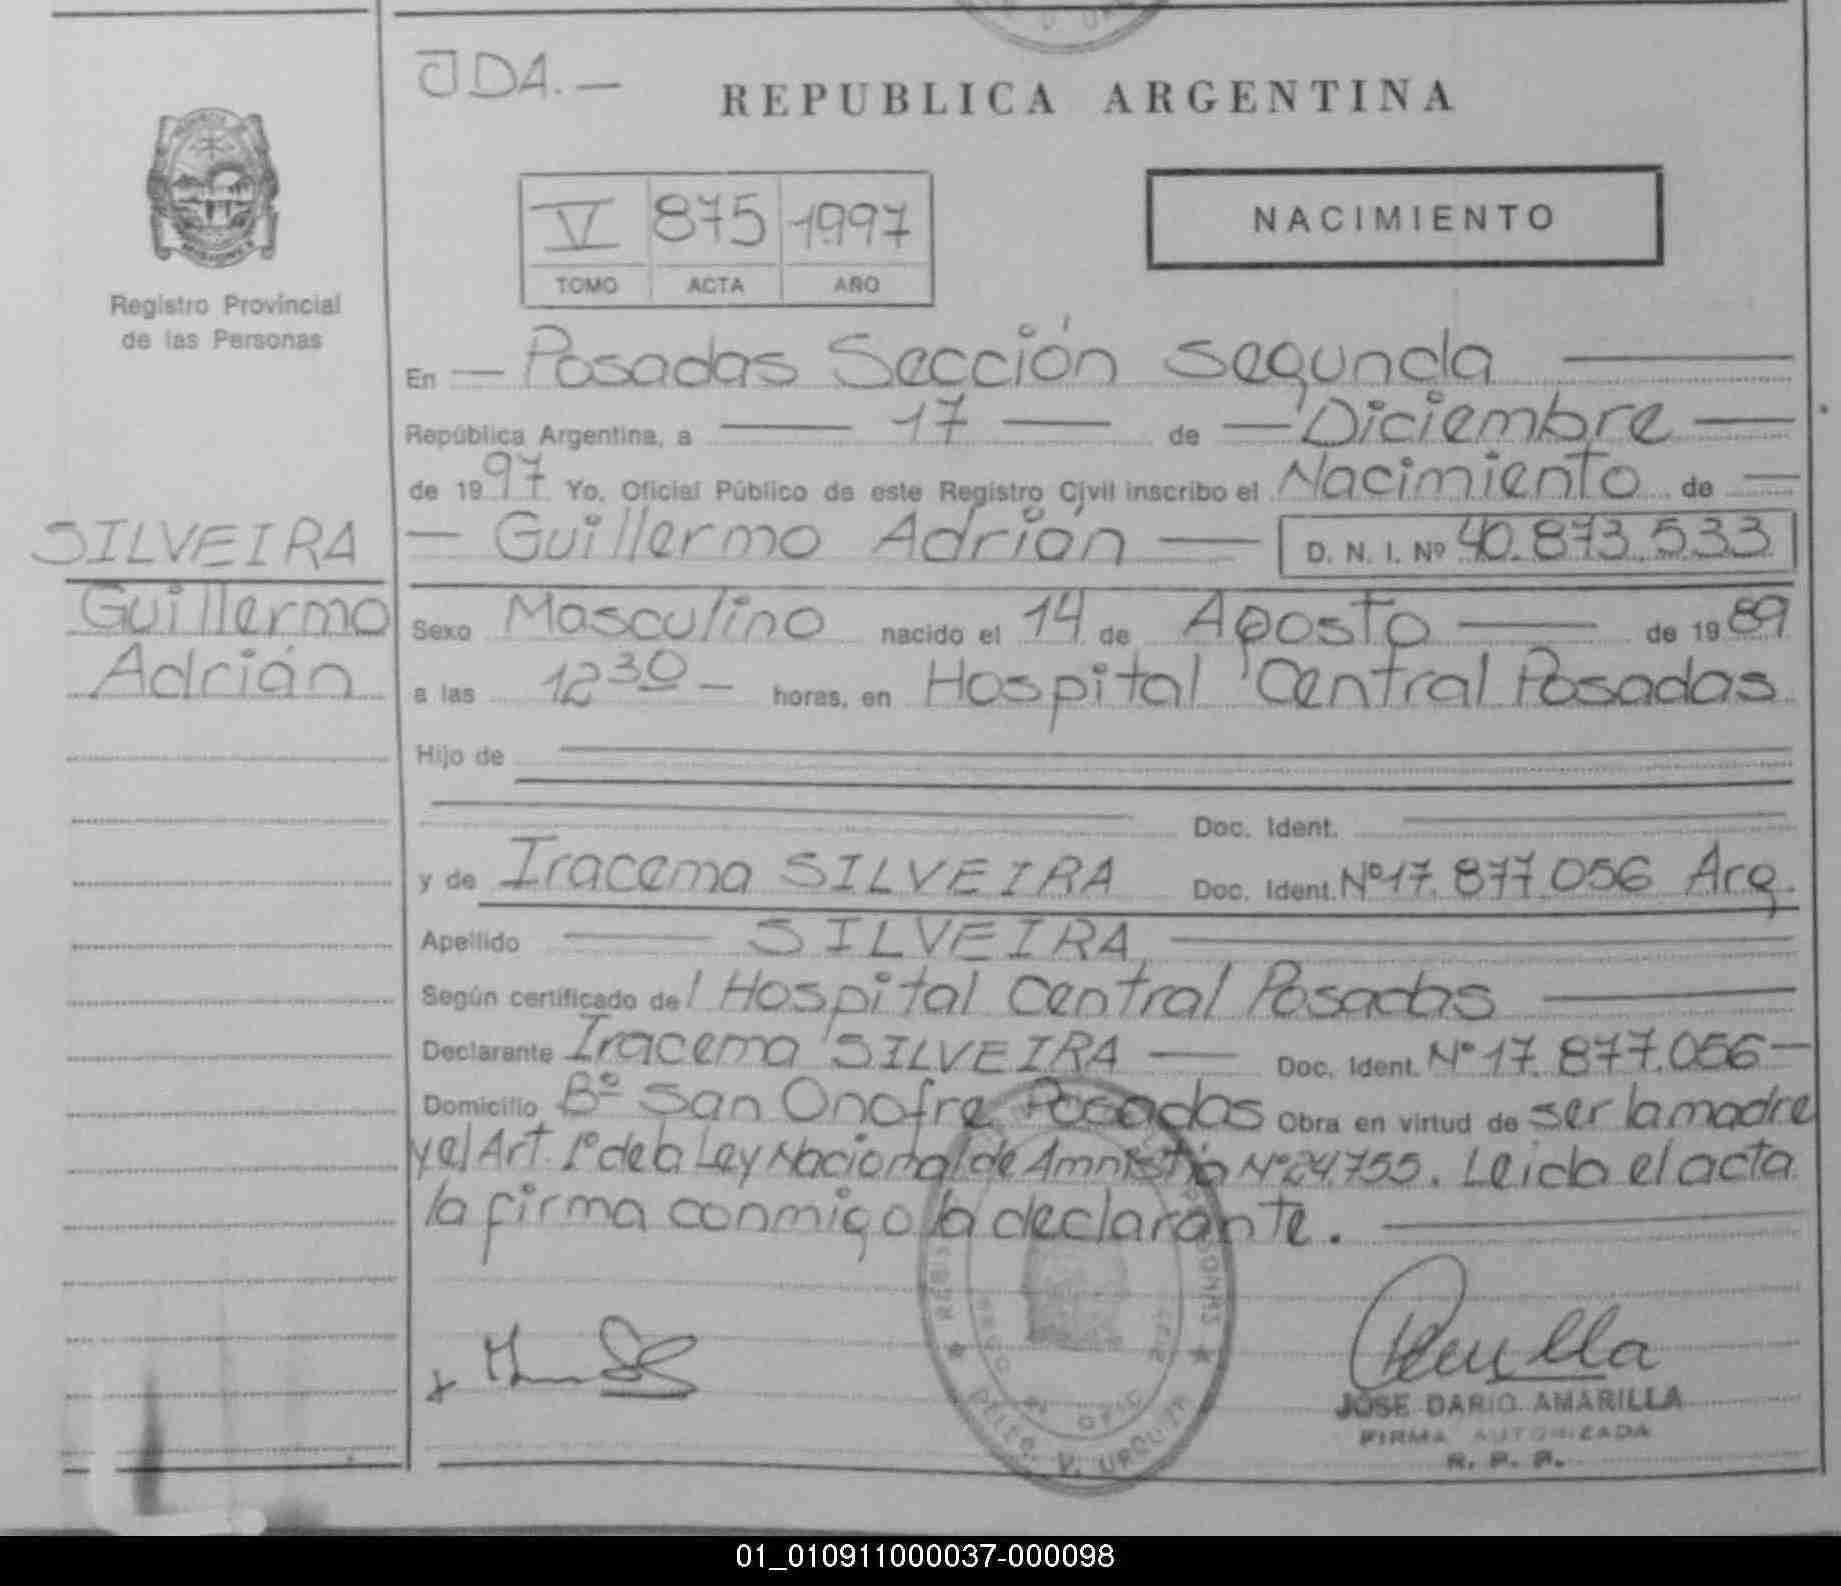 JDA.—
REPUBLICA ARGENTINA
V 875 1997
TOMO ACTA AÑO
NACIMIENTO
Registro Provincial
de las Personas
En — Posadas Sección segunda —
República Argentina, a — 17 — de — Diciembre —
de 1997 Yo, Oficial Público de este Registro Civil inscribo el Nacimiento de —
SILVEIRA
Guillermo
Adrián
— Guillermo Adrián — D. N. I. Nº 40.873.533
Sexo Masculino nacido el 14 de Agosto — de 1989
a las 12 30 — horas, en Hospital Central Posadas
Hijo de
Doc. Ident.
y de Iracema SILVEIRA Doc. Ident. Nº 17.877.056 Arg.
Apellido — SILVEIRA
Según certificado del Hospital Central Posadas —
Declarante Iracema SILVEIRA — Doc. Ident. Nº 17.877.056 —
Domicilio Bº San Onofre Posadas Obra en virtud de ser la madre
y el Art. 1º de la Ley Nacional de Amnistía Nº 24.755. Leída el acta
la firma conmigo la declarante. —
JOSE DARIO AMARILLA
FIRMA AUTORIZADA
R. P. P.
DELEG. V. URQUIZA
01_010911000037-000098